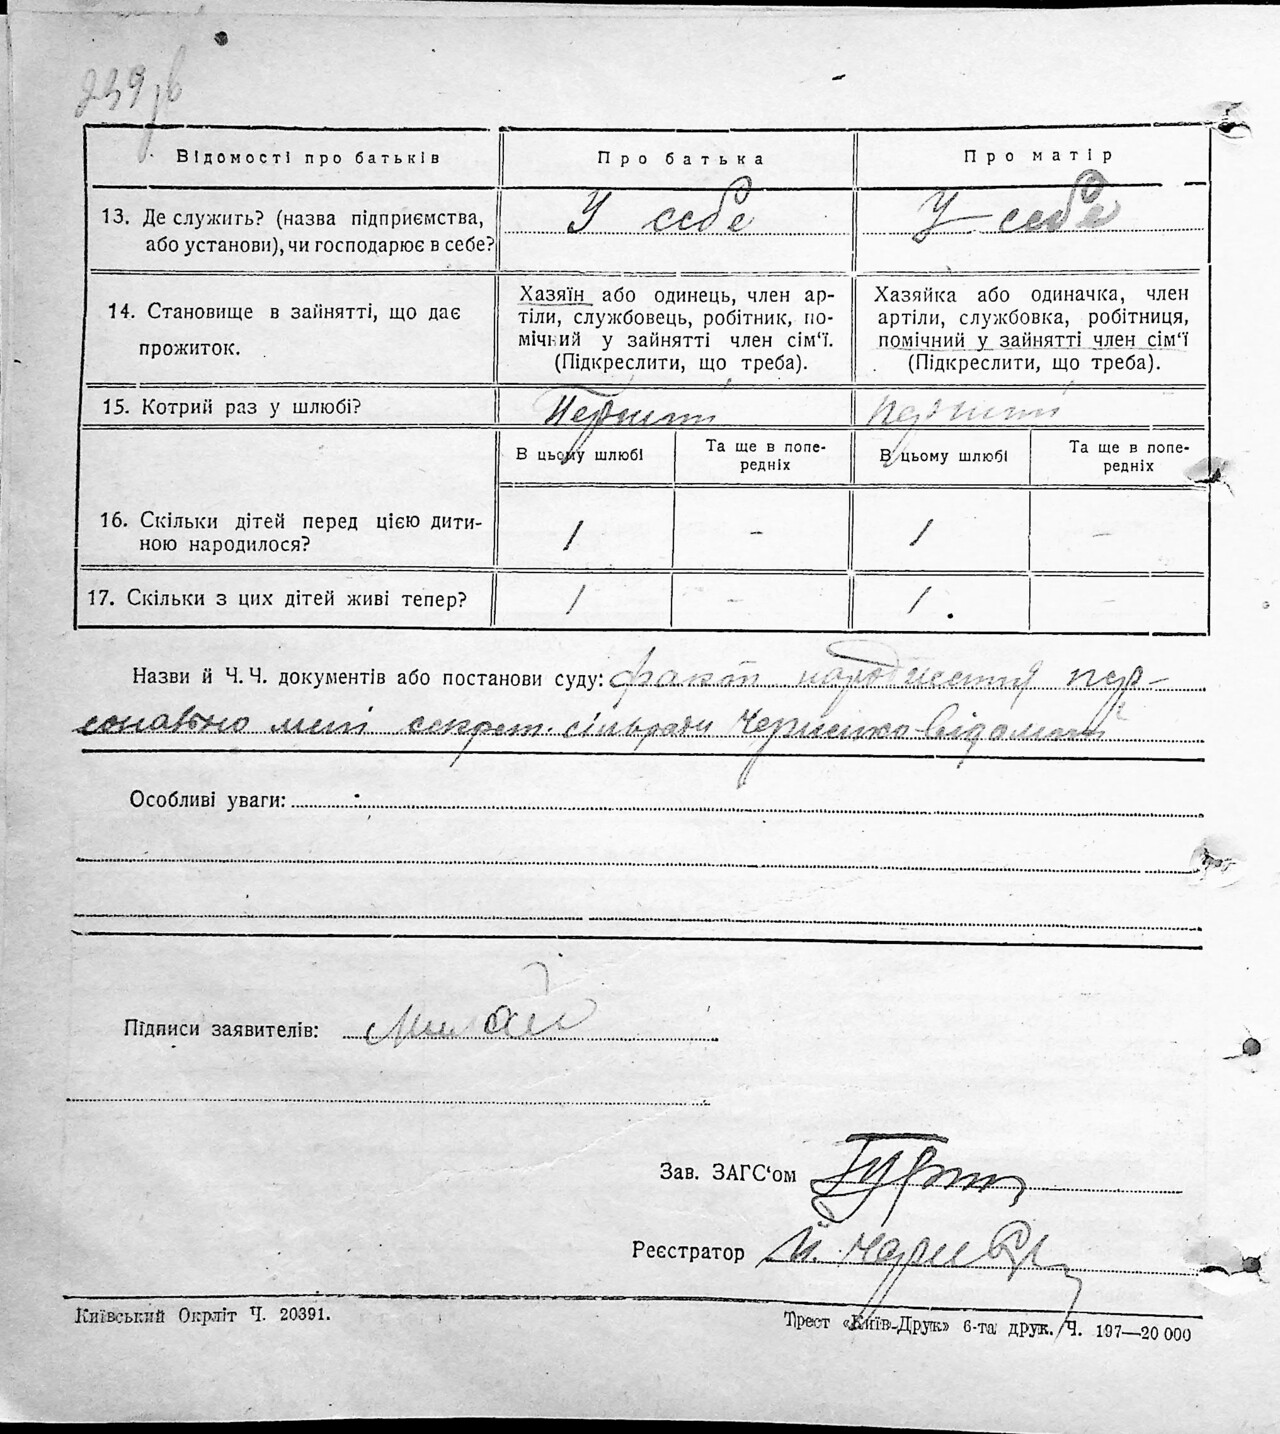 239 зв
Відомості про батьків
Про батька
Про матір
13. Де служить? (назва підприємства, або установи), чи господарює в себе?
У себе
У себе
14. Становище в зайнятті, що дає прожиток.
Хазяїн або одинець, член ар-
тіли, службовець, робітник, по-
мічний у зайнятті член сім'ї.
(Підкреслити, що треба).
Хазяйка або одиначка, член
артіли, службовка, робітниця,
помічний у зайнятті член сім'ї
(Підкреслити, що треба).
15. Котрий раз у шлюбі?
В цьому шлюбі
Та ще в попе-
редніх
В цьому шлюбі
Та ще в попе-
редніх
16. Скільки дітей перед цією дити-
ною народилося?
1
-
1
-
17. Скільки з цих дітей живі тепер?
1
-
1.
-
Назви й Ч. Ч. документів або постанови суду: факт народження пер-
сонально мені секрет. сільради відомий
Особливі уваги:
Підписи заявителів:
Зав. ЗАГС'ом
Реєстратор
Київський Окрліт Ч. 20391.
Трест «Київ-Друк» 6-та друк. Ч. 197—20 000